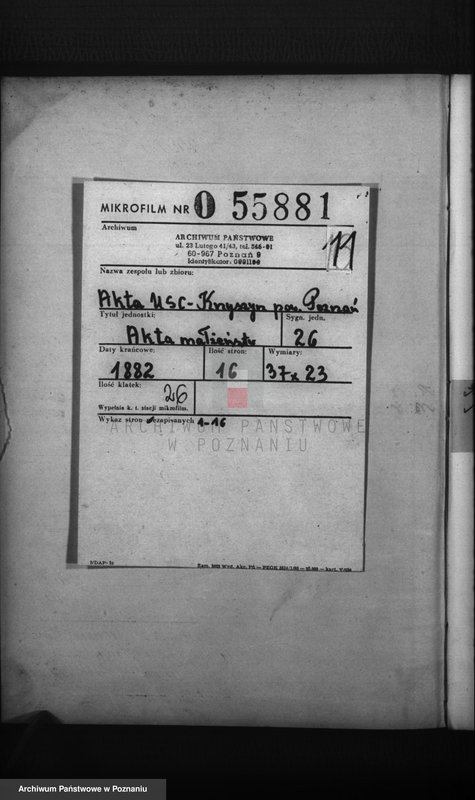 MIKROFILM NR 0 55881
Archiwum
ARCHIWUM PAŃSTWOWE
ul. 23 Lutego 41/43, tel. 546-01
60-967 Poznań 9
Identyfikator:
11
Nazwa zespołu lub zbioru:
Akta USC - Knyszyn pow. Poznań
Tytuł jednostki:
Sygn. jedn.
Akta małżeństw
26
Daty krańcowe:
Ilość stron:
Wymiary:
1882
16
37 x 23
Ilość klatek:
26
Wypełnia k. t. stacji mikrofilm.
Wykaz stron niezapisanych 1-16
ARCHIWUM PAŃSTWOWE
W POZNANIU
Archiwum Państwowe w Poznaniu